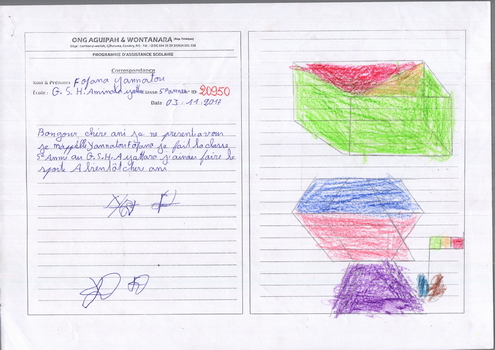 ONG AGUIPAH & WONTANARA
PROGRAMME D'ASSISTANCE SCOLAIRE
Correspondance
Nom & Prénoms : Fofana Yannatou
École : G. S. H. Classe 5e année ID: 20950
Date : 03.11.2017
Bongour, chère ami je ne presenta vous
je m'appelle Yannatou Fofana je fait la classe
5e Anné au G.S.H.A yattara j'aimais faire le
sport A bientôt cher ami